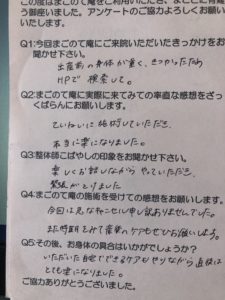 この度はまごのて庵をご利用いただき、まことに有難
う御座いました。アンケートのご協力よろしくお願い
いたします。
Q1:今回まごのて庵にご来院いただいたきっかけをお
聞かせ下さい。
出産前の身体が重く、きつかったため
HPで検索して。
Q2:まごのて庵に実際に来てみての率直な感想をざっ
くばらんにお願いします。
ていねいに施術していただき、
本当に楽になりました。
Q3:整体師こばやしの印象をお聞かせ下さい。
楽しくお話しながらやっていただき、
緊張がとけました
Q4:まごのて庵の施術を受けての感想をお願いします。
今回は急なキャンセル申し訳ありませんでした。
また時期をみて産後のケアもぜひお願いします。
Q5:その後、お身体の具合はいかがでしょうか?
いただいた自宅でできるケアもやりながら直後は
とても楽になりました。
ご協力ありがとうございました。